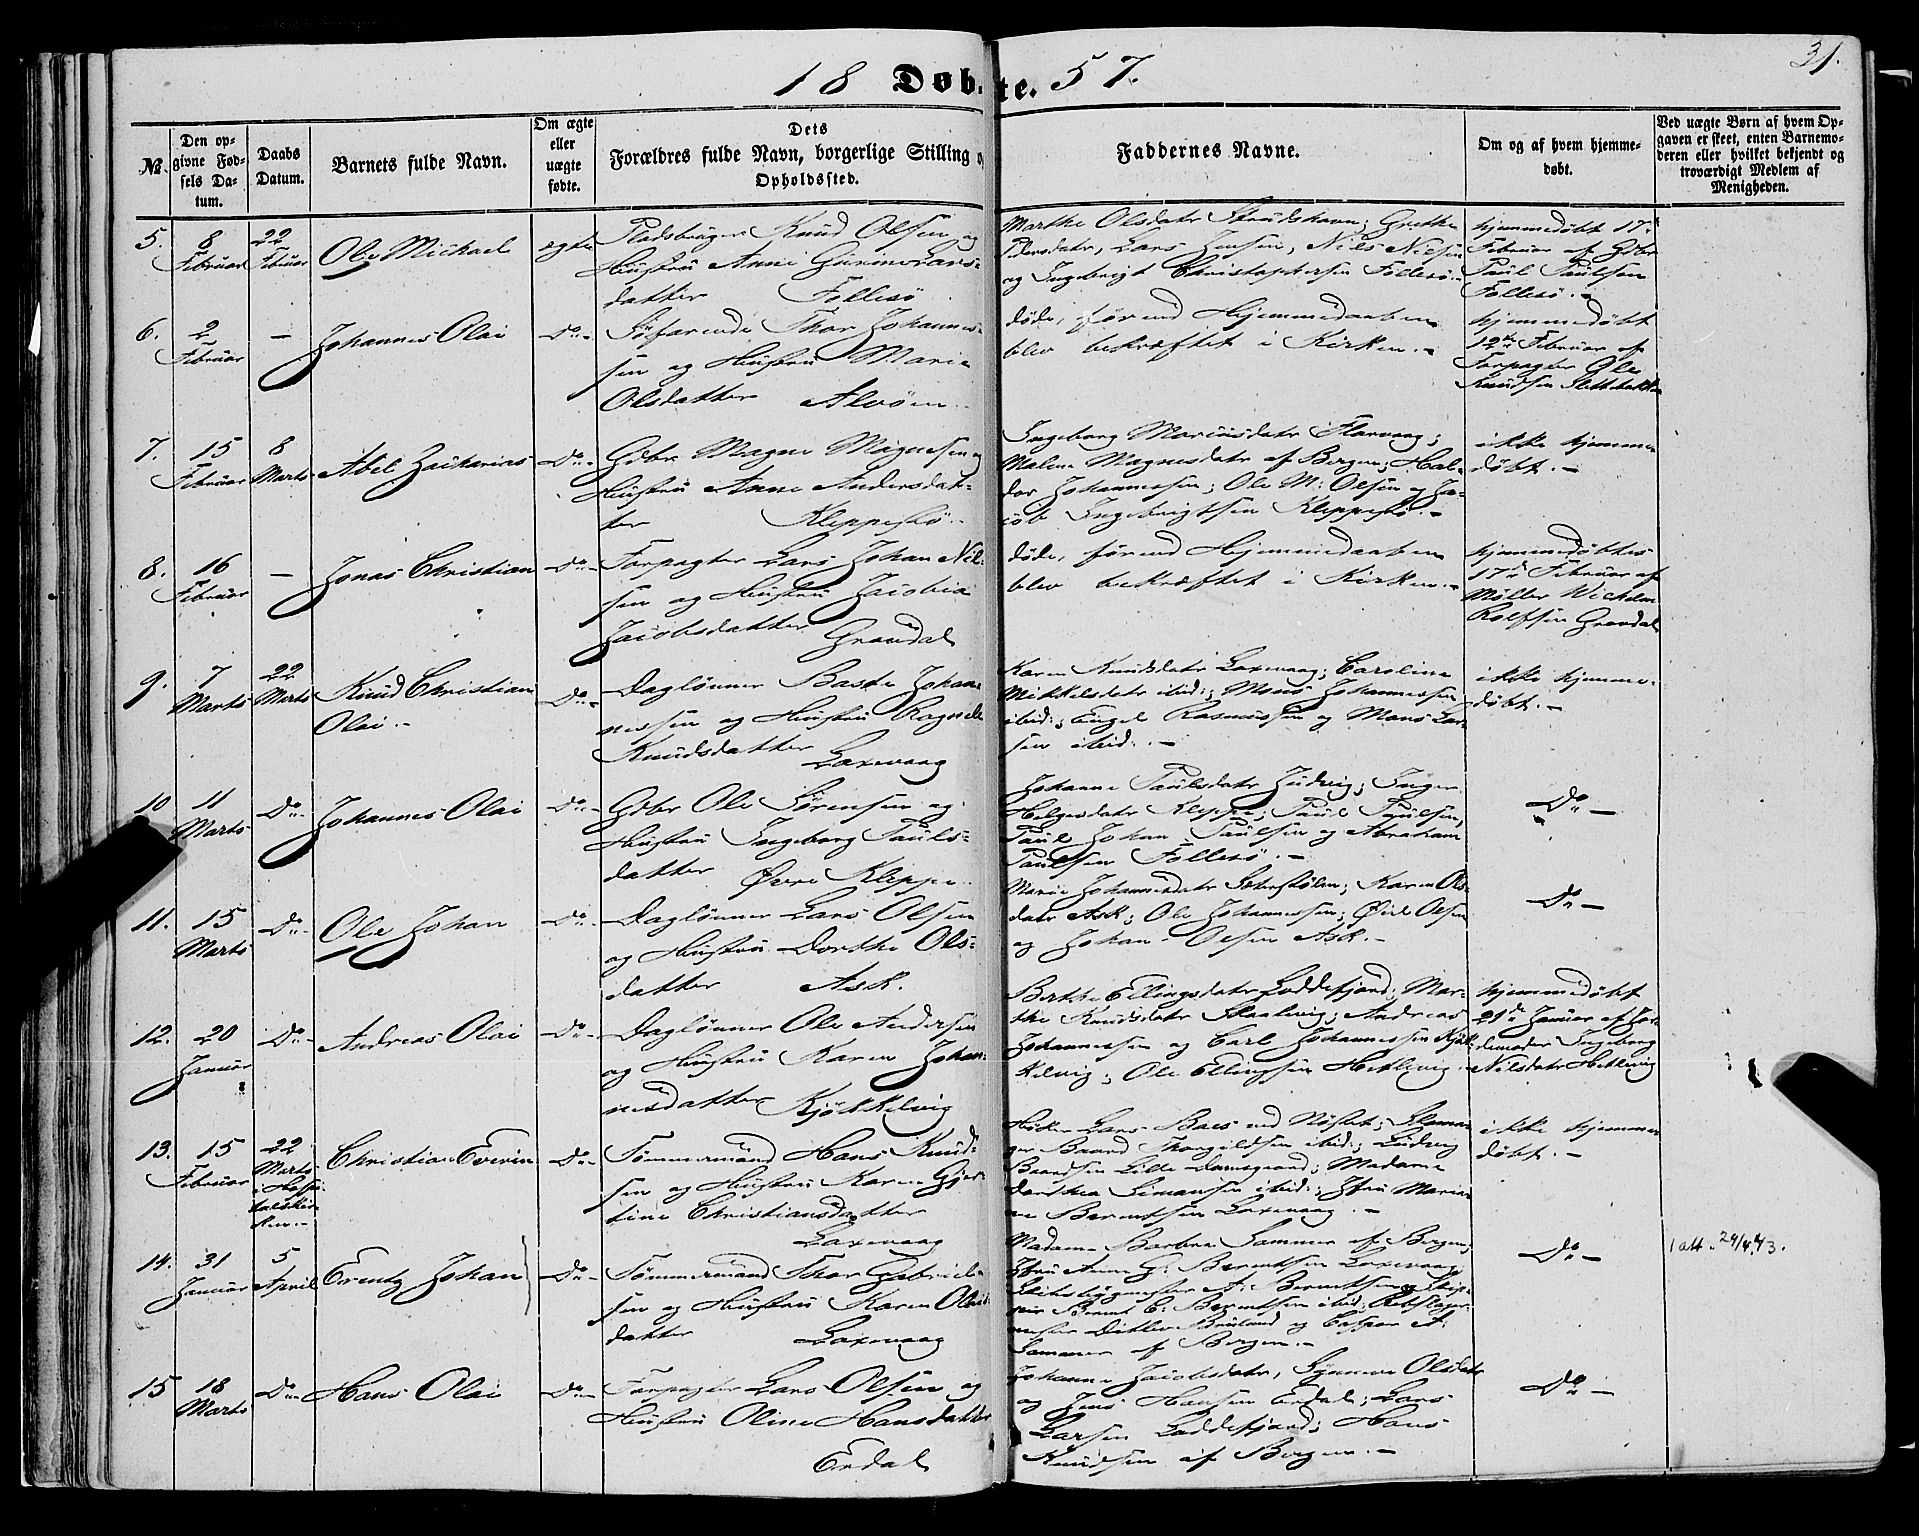 31.
18 Døbte. 57.
№.
Den opgivne Fødsels Datum.
Daabs Datum.
Barnets fulde Navn.
Om ægte eller uægte fødte.
Dets Forældres fulde Navn, borgerlige Stilling og Opholdssted.
Faddernes Navne.
Om og af hvem hjemmedøbt.
Ved uægte Børn af hvem Opgaven er skeet, enten Barnemoderen eller hvilket bekjendt og troværdigt Medlem af Menigheden.
5. 8 Februar 22 Februar Ole Michael ægte
Pladsbruger Knud Olsen og
Hustru Anne Gurine Lars-
datter Follesö
Marthe Olsdatr Strudshavn; Grethe
Pedersdatr, Lars Jensen, Nils Nilsen
og Ingebrigt Christophersen Follesö.
hjemmedøbt 17de
Februar af Gbr
Paul Paulsen
Follesö.-
6. 2 Februar - Johannes Olai Do-
Söfarende Thor Johannes-
sen og Hustru Marie
Olsdatter Alvöen
døde, förend Hjemmedaaben
blev bekræftet i Kirken.-
hjemmedøbt
12te Februar af
Forpagter Ole
Knudsen
7. 15 Februar 8 Marts Abel Zacharias Do-
Gdbr Magne Magnesen og
Hustru Anne Andersdat-
ter Kleppestö.
Ingeborg Mariusdatr Florvaag;
Malene Magnesdatr af Bergen; Hal-
dor Johannessen; Ole M: Olsen og Ja-
cob Ingebrigtsen Kleppestö.-
ikke hjemme-
døbt.-
8. 16 Februar - Jonas Christian Do-
Forpagter Lars Johan Nil-
sen og Hustru Jacobia
Jacobsdatter Gravdal
døde, förend Hjemmedaaben
blev bekræftet i Kirken.-
hjemmedøbtes
17de Februar af
Møller Wichelm
Rolfsen Gravdal
9. 7 Marts 22 Marts Knud Christian Do-
Olai.-
Daglønner Baste Johan-
nessen og Hustru Ragnele
Knudsdatter Laxevaag
Karen Knudsdatr Laxevaag; Caroline
Mikkelsdatr ibid:; Mons Johannessen
ibid:; Engel Rasmussen og Mons Lar-
sen ibid:.-
ikke hjemme-
døbt.-
10 11 Marts Do- Johannes Olai Do-
Gdbr Ole Sörensen og
Hustru Ingeborg Pauls-
datter Øvre Kleppe.
Johanne Paulsdatr Judvig; Inger
Helgesdatr Kleppe; Paul Paulsen,
Paul Johan Paulsen og Abraham
Paulsen Follesö.-
Do-
11. 15 Marts Do- Ole Johan Do-
Daglønner Lars Olsen
og Hustru Dorthe Ols-
datter Ask.
Marie Johannesdatr; Karen Ols-
datr Ask; Ole Johannessen; Olsen
og Johan Olsen Ask.-
Do-
12. 20 Januar Do- Andreas Olai Do-
Daglønner Ole Andersen
og Hustru Karen Johan-
nesdatter Kjökkelvig
Berthe Ellingsdatr Loddefjord; Mar-
the Knudsdatr Skaalvig; Andreas
Johannessen og Carl Johannessen Kjök-
kelvig; Ole Ellingsen Hetlevig
hjemmedøbt
21de Januar af Jor-
demoder Ingeborg
Nilsdatr Hetlevig
13. 15 Februar 22 Marts i Hospi-talskir-ken.- Christian Everin Do-
Tömmermand Hans Knud-
sen og Hustru Karen Gjer-
tine Christiansdatter
Laxevaag
Höker Lars Baes ved Nöstet;
Baard Thorgildsen ibid:; Ludvig
Baardsen Lille Damsgaard; Madame
Dorthea Simonsen ibid:; Jfru Maria-
ne Berentsen Laxevaag.-
ikke hjemme-
døbt.-
14. 31 Januar 5 April Erentz Johan Do-
Tömmermand Thor Gabriel-
sen og Hustru Karen Olai-
datter Laxevaag
Madame Barbra Sommer af Bergen;
Jfru Anne G: Berentsen Laxevaag;
A: Berentsen og Skip-
per Berent C: Berentsen ibid; Rebslager-
mester Ditlev og Casper A:
Sommer af Bergen.-
Do-
1 att. 29/4.43.
15 18 Marts Do- Hans Olai Do-
Forpagter Lars Olsen og
Hustru Oline Hansdatter
Erdal
Johanne Jacobsdatr, Synneve Olsdatr
og Jens Hansen Erdal; Lars
Larsen Loddefjord; Hans
Knudsen af Bergen.-
Do-